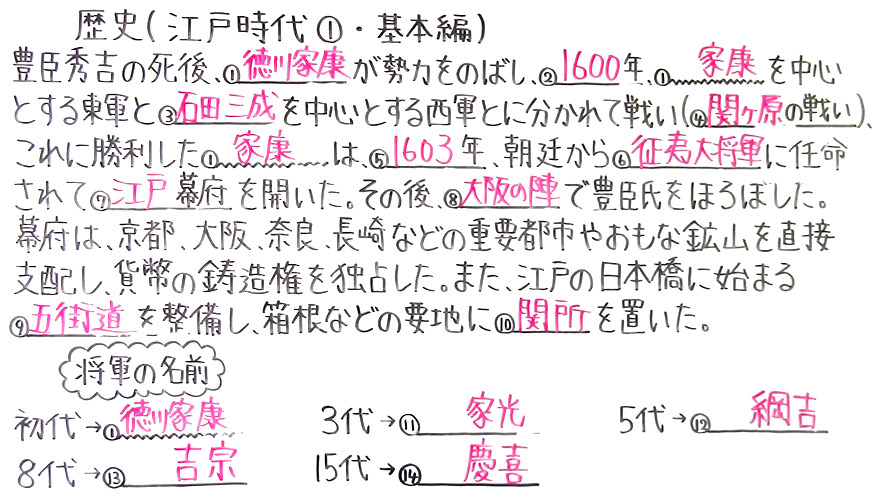 歴史(江戸時代①・基本編)
豊臣秀吉の死後、①徳川家康が勢力をのばし、②1600年、①家康を中心
とする東軍と③石田三成を中心とする西軍とに分かれて戦い(④関ヶ原の戦い)、
これに勝利した①家康は、⑤1603年、朝廷から⑥征夷大将軍に任命
されて⑦江戸幕府を開いた。その後、⑧大阪の陣で豊臣氏をほろぼした。
幕府は、京都、大阪、奈良、長崎などの重要都市やおもな鉱山を直接
支配し、貨幣の鋳造権を独占した。また、江戸の日本橋に始まる
⑨五街道を整備し、箱根などの要地に⑩関所を置いた。
将軍の名前
初代→①徳川家康 3代→⑪家光 5代→⑫綱吉
8代→⑬吉宗 15代→⑭慶喜